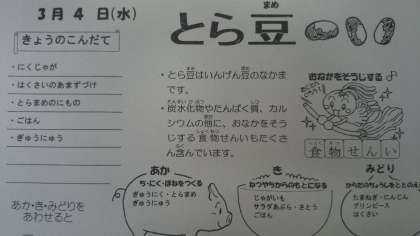 3月4日(水)
きょうのこんだて
・にくじゃが
・はくさいのあまずづけ
・とらまめのにもの
・ごはん
・ぎゅうにゅう
とら豆
まめ
・とら豆はいんげん豆のなかまです。
・炭水化物やたんぱく質、カル
シウムの他に、おなかをそう
じする食物せんいもたくさ
ん含んでいます。
おなかをそうじする
食物せんい
あか
ち・にく・ほねをつくる
ぎゅうにく・とらまめ
ぎゅうにゅう
き
ねつやちからのもとになる
じゃがいも
サラダあぶら・さとう
ごはん
みどり
からだのちょうしをととのえ
たまねぎ・にんじん
グリンピース
はくさい
あか・き・みどりを
あわせると